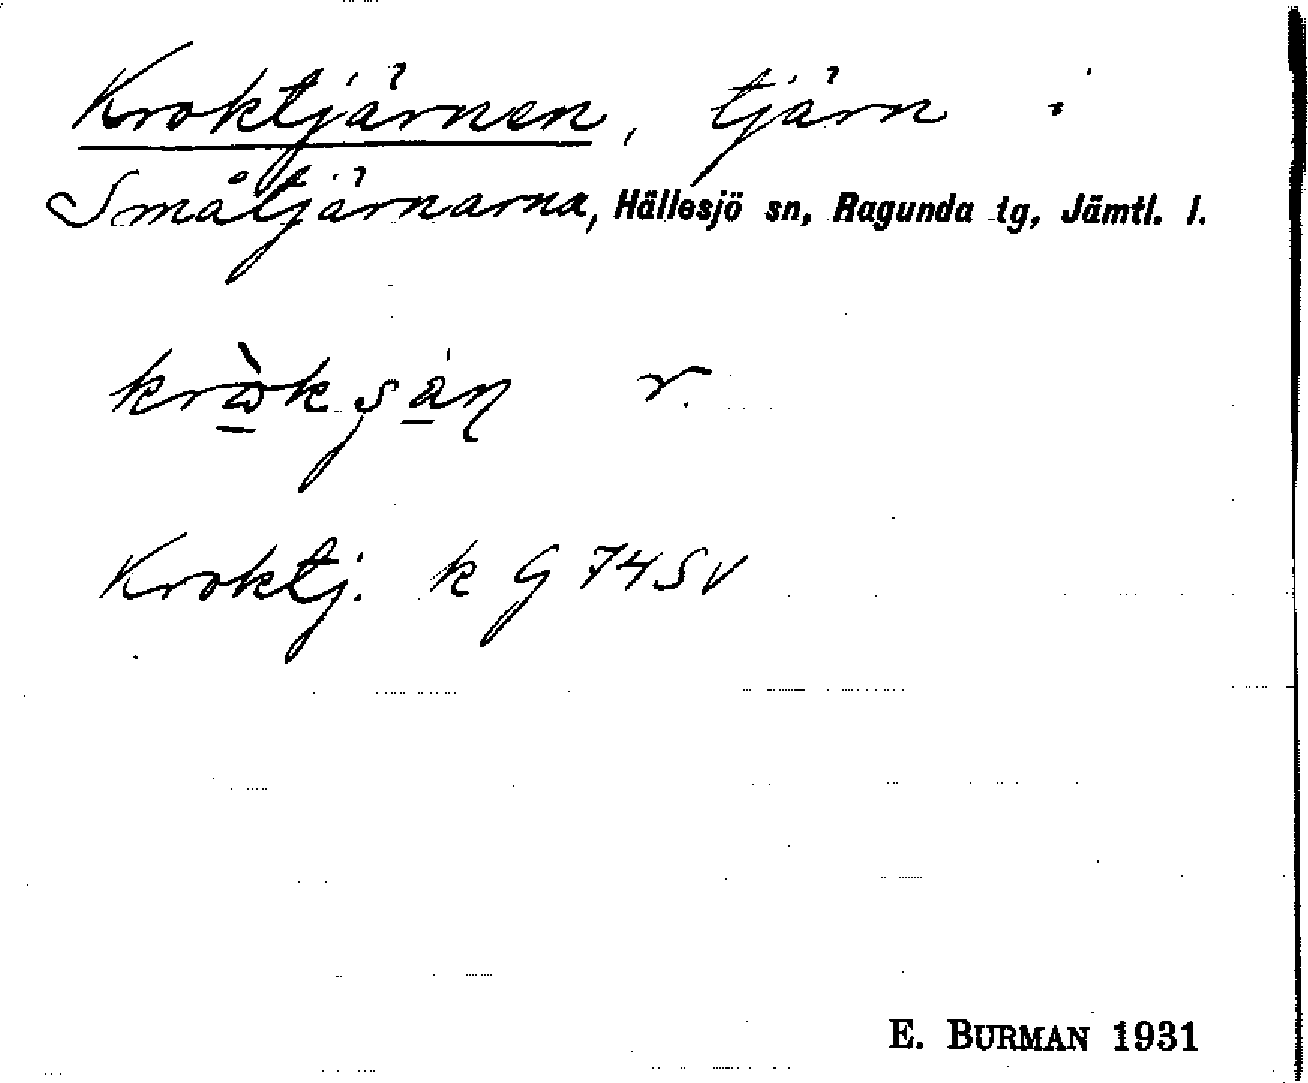 Kroktjärnen, tjärn i
Småtjärnarna, Hällesjö sn, Ragunda tg, Jämtl. l.
Kroktj. k G 74 SV
E. BURMAN 1931